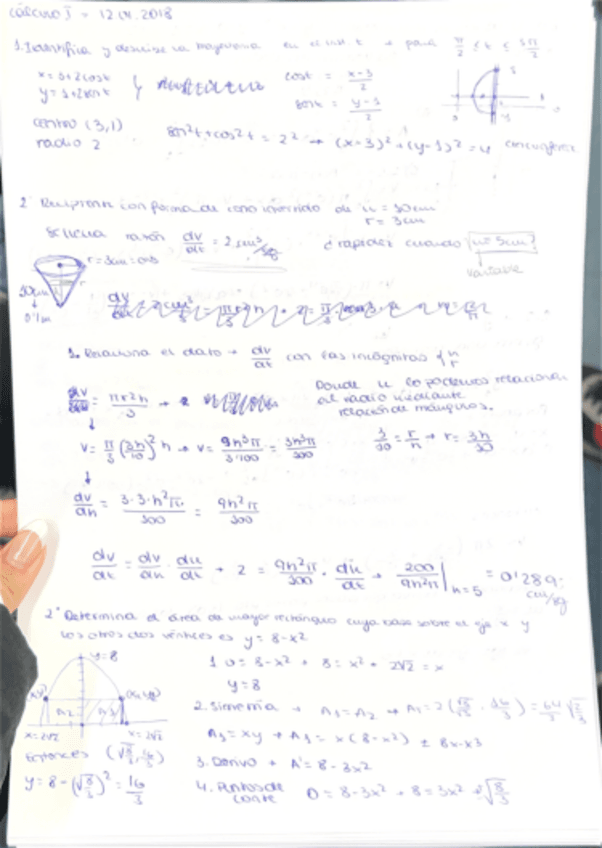 cálculo I - 12.04.2018
1. Identifica y describe la trayectoria en el inst. t → para π/2 ≤ t ≤ 3π/2
x = 3+2cost
y = 1+2sent
cost = x-3/2
sent = y-1/2
centro (3,1)
radio 2
sen²t+cos²t = 2² → (x-3)²+(y-1)² = 4 circunferencia
2 Recipiente con forma de cono invertido de h = 10cm
r = 3cm
razón dv/dt = 2 cm³/sg ¿rapidez cuando h=5cm?
variable
r=3cm
10cm
0'1m
1. Relaciona el dato → dv/dt con las incógnitas { h r
= πr²h/3
Donde h lo podemos relacionar
al radio mediante
relación de triángulos.
v = π/3 (3h/10)² h → v = 9h³π/3·100 = 3h³π/100
3/10 = r/h → r = 3h/10
dv/dh = 3·3·h²π/100 = 9h²π/100
dv/dt = dv/dh · dh/dt → 2 = 9h²π/100 · dh/dt → 200/9h²π | h=5 = 0'289 cm/sg
2° Determina el área de mayor rectángulo cuya base sobre el eje x y
los otros dos vértices es y = 8-x²
y=8
1. 0 = 8-x² → 8 = x² → 2√2 = x
y=8
2. Simetría → A₁ = A₂
A₁ = xy → A₁ = x(8-x²) = 8x-x³
x=2√2
x=2√2
Entonces (√8/3, 16/3)
3. Derivo → A' = 8-3x²
y = 8-(√8/3)² = 16/3
4. Puntos de
corte
0 = 8-3x² → 8 = 3x² → √8/3